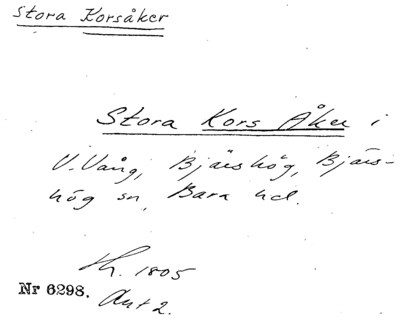 Stora Korsåker
Stora Kors Åker i
V. Vång, Bjäshög, Bjäs-
hög sn, Bara hd.
Sk. 1805
Nr 6298.
Akt 2.